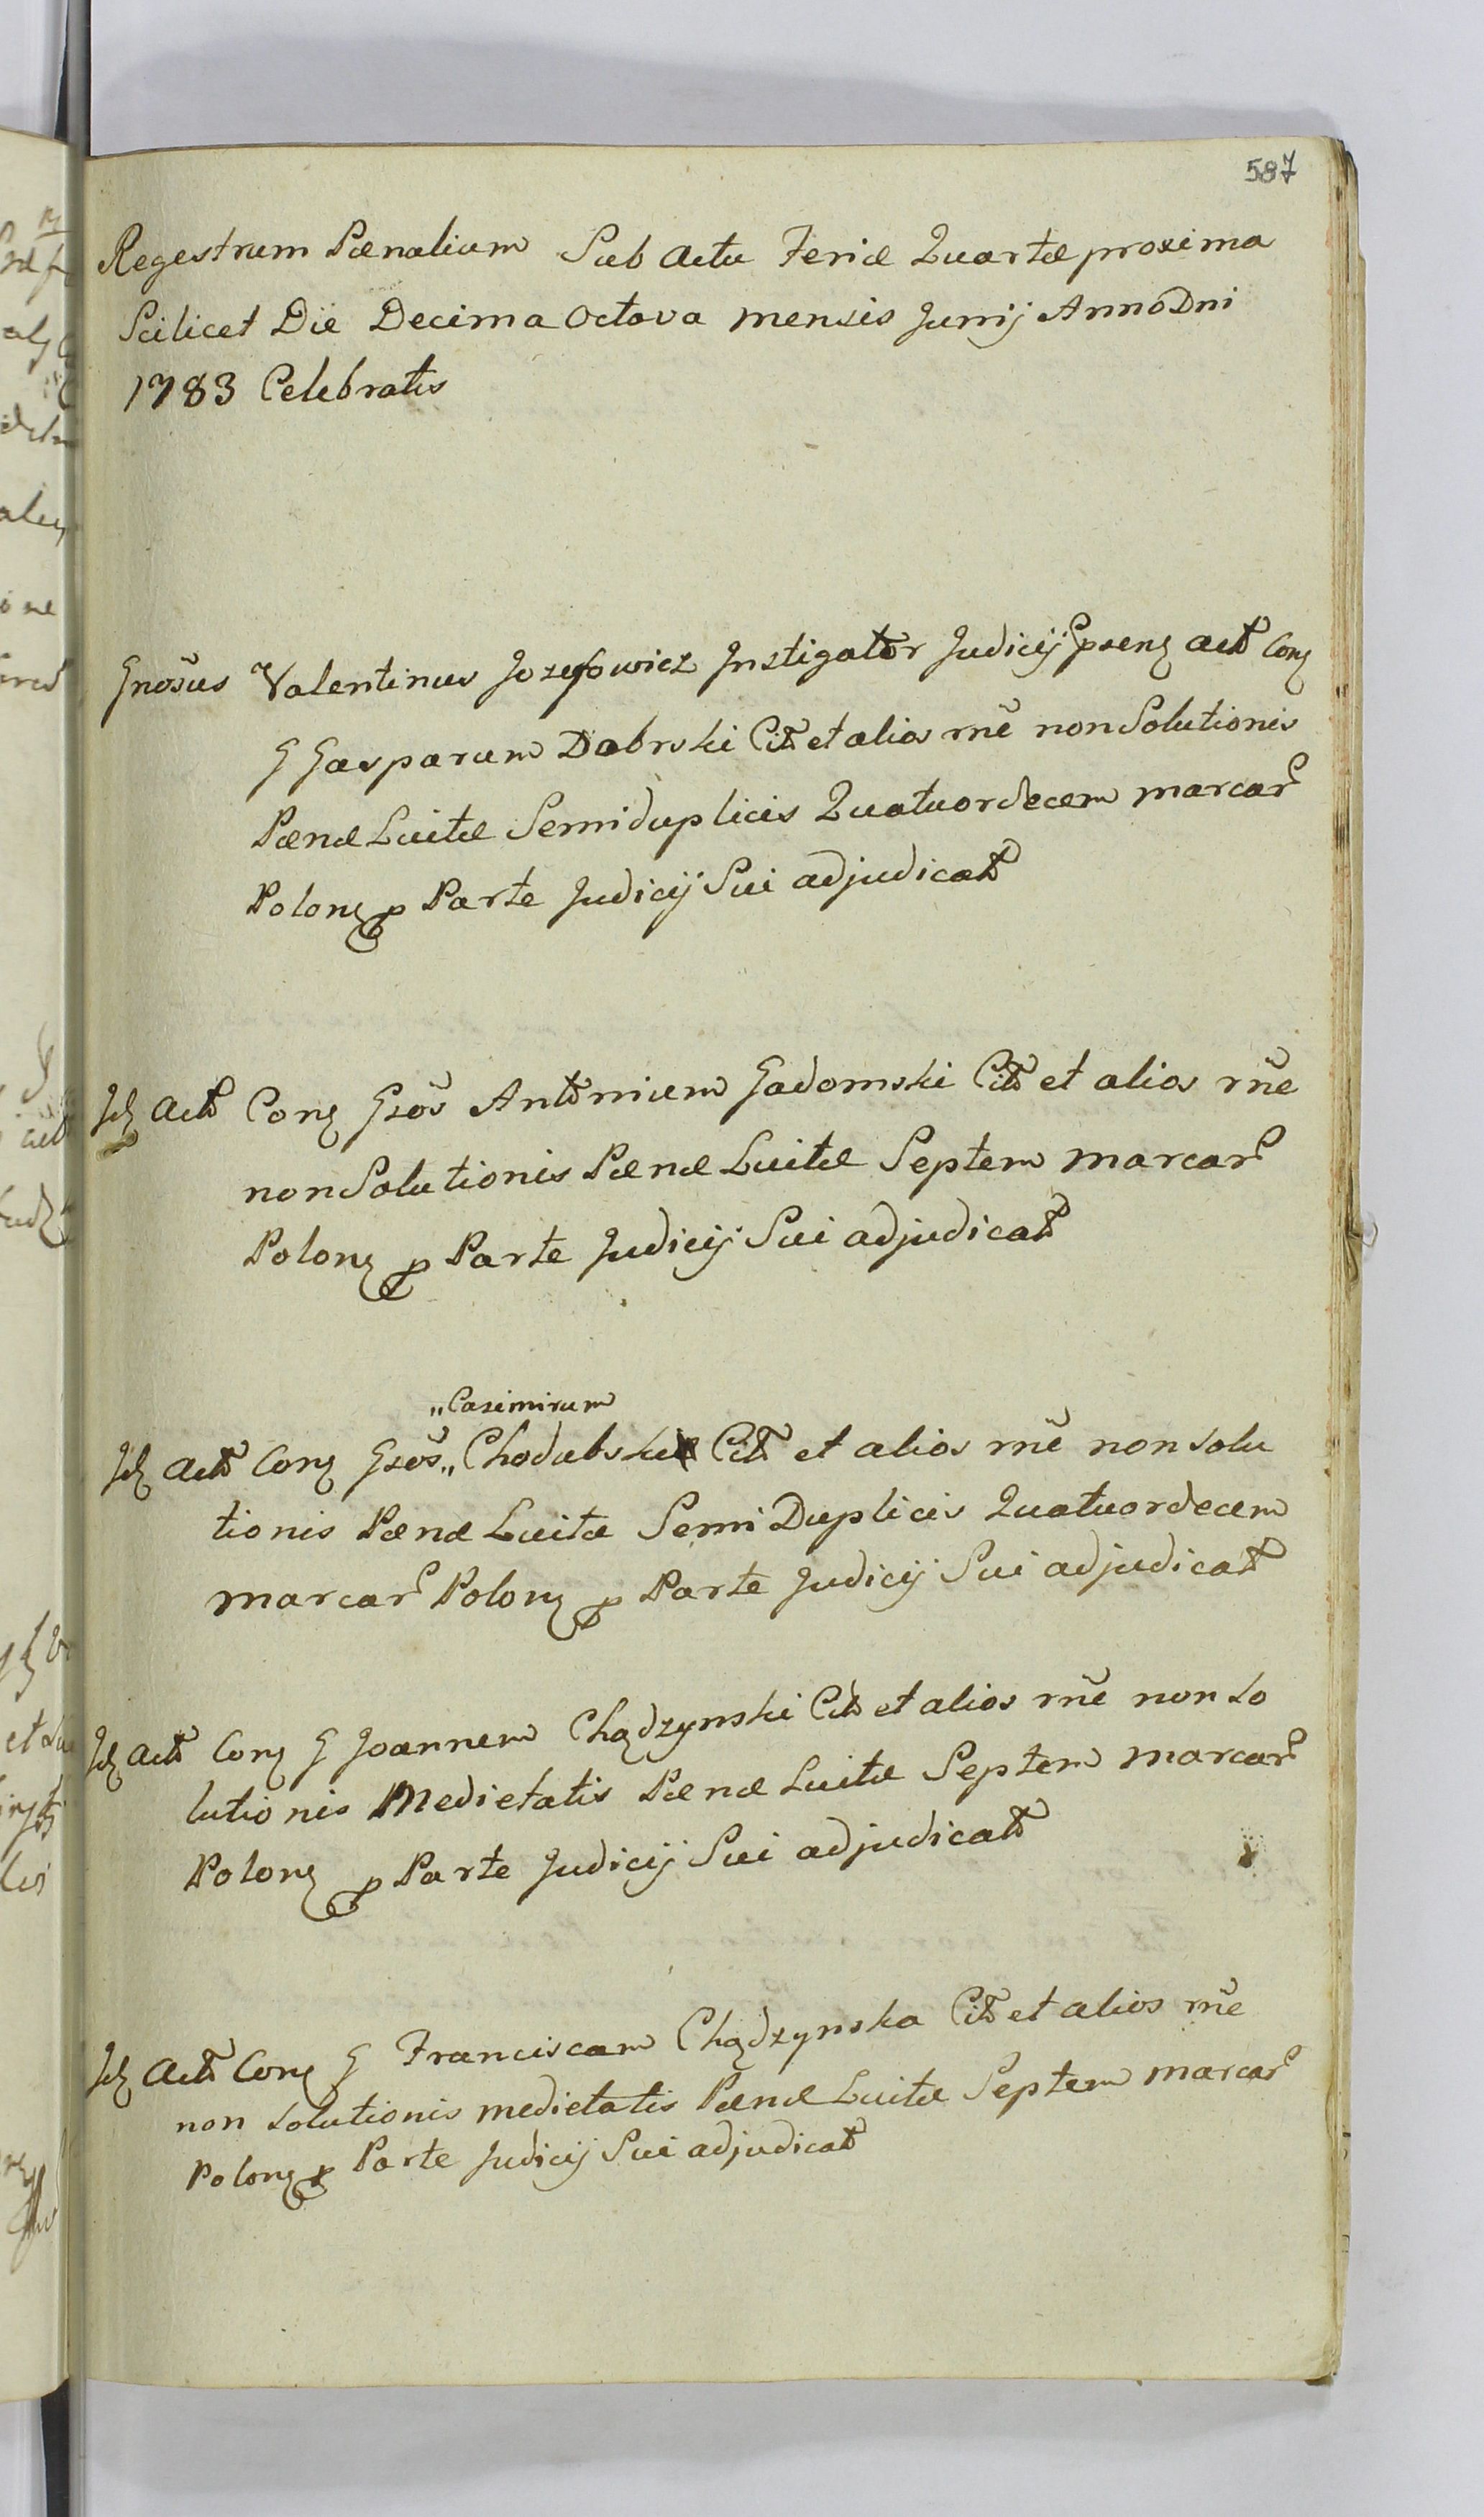 587
Regestrum Pænalium Sub Actu Feriæ Quartæ proxima
Scilicet Die Decima Octava mensis Junij Anno Dni
1783 Celebratis
Gnosus Valentinus Jozefowicz Instigator Judicij Psens act Con
G Gasparum Dabrski Cit et alios rne non Solutionis
Pænæ Luitæ Semiduplicis Quatuordecem marcar
Polon p Parte Judicij Sui adjudicat
Id Act Con Gsos Antonium Gadomski Cit et alios rne
non Solutionis Pænæ Luitæ Septem marcar
Polon p Parte Judicij Sui adjudicat
„Casimirum
Id Act Con Gsos „Chodubski Cit et alios rne non solu
tionis Pænæ Luitæ Semi Duplicis Quatuordecem
marcar Polon p Parte Judicij Sui adjudicat
Id Act Con G Joannem Chądzynski Cit et alios rne non so
lutionis Medietatis Pænæ Luitæ Septem marcar
Polon p Parte Judicij Sui adjudicat
Id Act Con G Franciscam Chądzynska Cit et alios rne
non solutionis medietatis Pænæ Luitæ Septem marcar
Polon p Parte Judicij Sui adjudicat